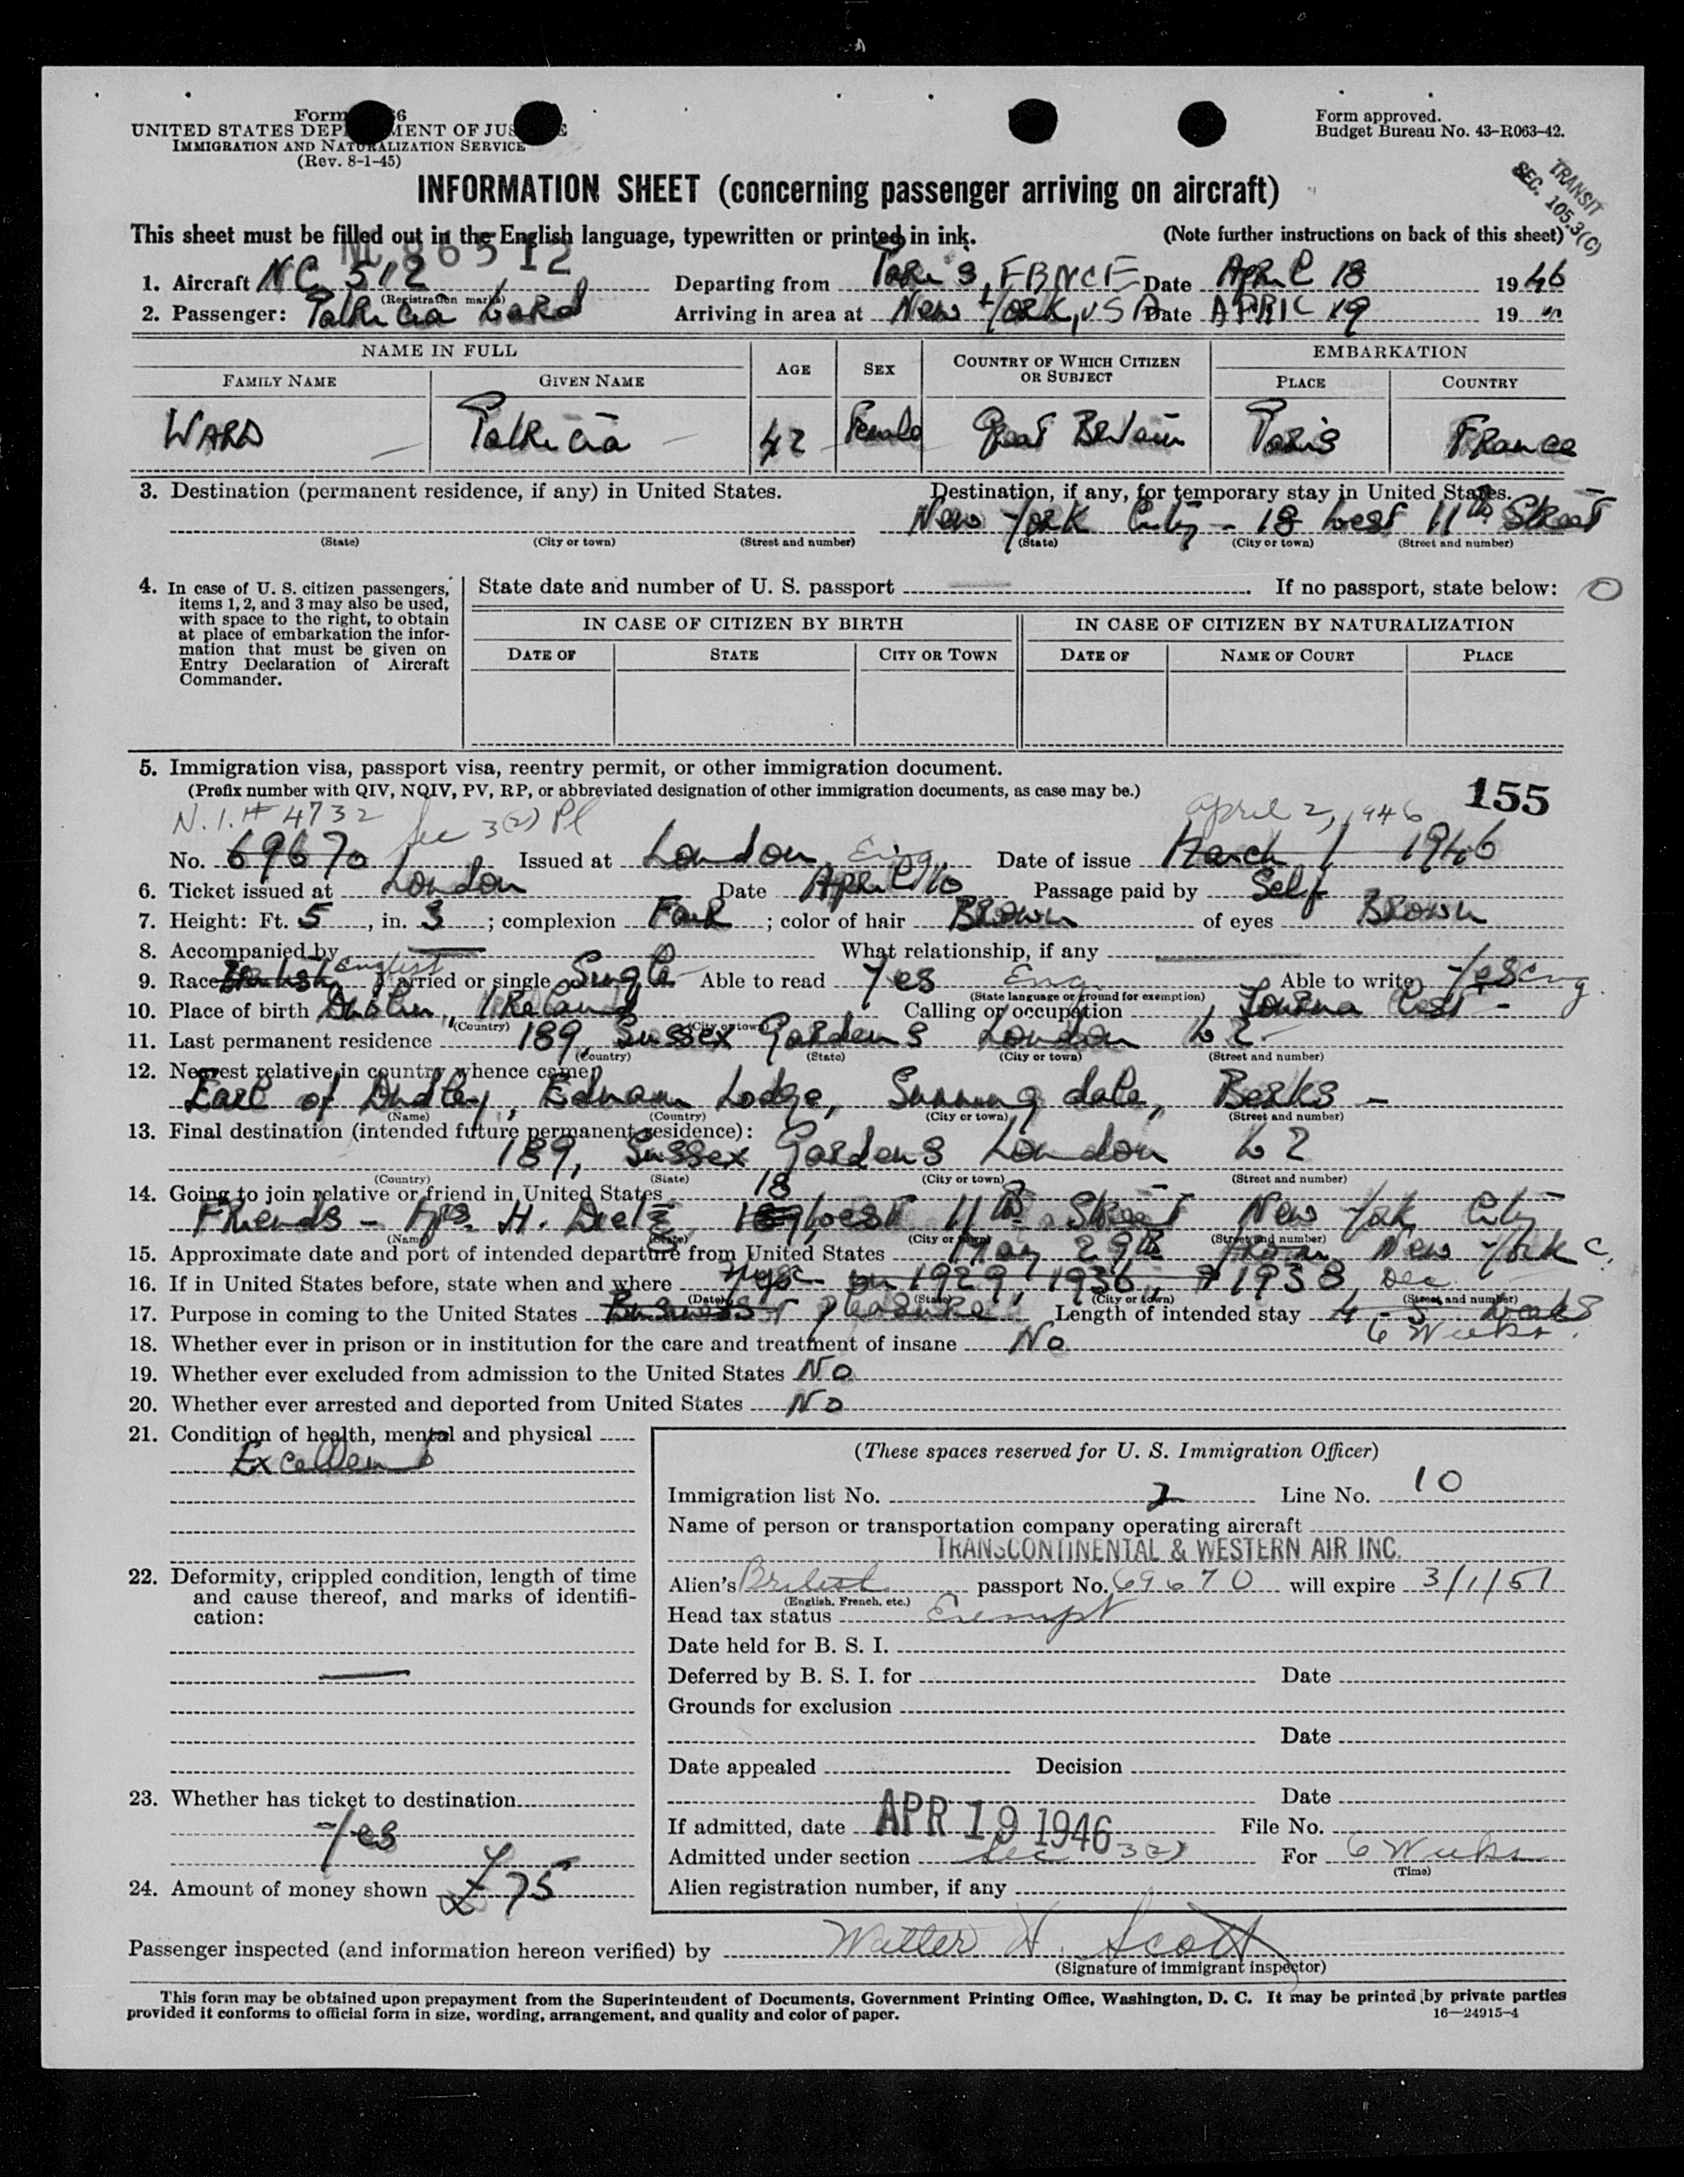 Form 6
UNITED STATES DEP MENT OF JUS E
IMMIGRATION AND NATURALIZATION SERVICE
(Rev. 8-1-45)
Form approved.
Budget Bureau No. 43-R063-42.
TRANSIT
SEC. 105.3(C)
INFORMATION SHEET (concerning passenger arriving on aircraft)
This sheet must be filled out in the English language, typewritten or printed in ink.
(Note further instructions on back of this sheet)
86512
1. Aircraft NC 512 Departing from Paris, FRNCE Date April 18 1946
(Registration marks)
2. Passenger: Patricia Ward Arriving in area at New York, USA Date APRIL 19 19 "
NAME IN FULL AGE SEX COUNTRY OF WHICH CITIZEN OR SUBJECT EMBARKATION
FAMILY NAME GIVEN NAME PLACE COUNTRY
WARD Patricia 42 Female Great Britain Paris France
3. Destination (permanent residence, if any) in United States. Destination, if any, for temporary stay in United States.
New York City - 18 West 11th Street
(State) (City or town) (Street and number) (State) (City or town) (Street and number)
4. In case of U. S. citizen passengers, items 1, 2, and 3 may also be used, with space to the right, to obtain at place of embarkation the information that must be given on Entry Declaration of Aircraft Commander.
State date and number of U. S. passport . If no passport, state below: O
IN CASE OF CITIZEN BY BIRTH IN CASE OF CITIZEN BY NATURALIZATION
DATE OF STATE CITY OR TOWN DATE OF NAME OF COURT PLACE
5. Immigration visa, passport visa, reentry permit, or other immigration document.
(Prefix number with QIV, NQIV, PV, RP, or abbreviated designation of other immigration documents, as case may be.)
155
N.I.# 4732 Sec 3(2) Pl April 2, 1946
No. 69670 Issued at London, Eng. Date of issue March 1 1946
6. Ticket issued at London Date April 10 Passage paid by Self
7. Height: Ft. 5, in. 3; complexion Fair; color of hair Brown of eyes Brown
8. Accompanied by What relationship, if any
9. Race British English Married or single Single Able to read Yes Eng. Able to write Yes Eng.
(State language or ground for exemption)
10. Place of birth Dublin, Ireland Calling or occupation Journalist -
(Country) (City or town)
11. Last permanent residence 189, Sussex Gardens London W2
(Country) (State) (City or town) (Street and number)
12. Nearest relative in country whence came:
Earl of Dudley, Ednam Lodge, Sunningdale, Berks -
(Name) (Country) (City or town) (Street and number)
13. Final destination (intended future permanent residence):
189, Sussex Gardens London W2
(Country) (State) (City or town) (Street and number)
14. Going to join relative or friend in United States 18
Friends - Mrs. H. West 11th Street New York City
(Name) (State) (City or town) (Street and number)
15. Approximate date and port of intended departure from United States May 29th from New York C.
16. If in United States before, state when and where 1929, 1936, 1938 Dec
(Date) (State) (City or town) (Street and number)
17. Purpose in coming to the United States Business pleasure Length of intended stay 4 - 5 weeks
6 Weeks.
18. Whether ever in prison or in institution for the care and treatment of insane No
19. Whether ever excluded from admission to the United States No
20. Whether ever arrested and deported from United States No
21. Condition of health, mental and physical
Excellent
22. Deformity, crippled condition, length of time and cause thereof, and marks of identification:
23. Whether has ticket to destination
Yes
24. Amount of money shown £75
(These spaces reserved for U. S. Immigration Officer)
Immigration list No. 2 Line No. 10
Name of person or transportation company operating aircraft
TRANSCONTINENTAL & WESTERN AIR INC.
Alien's British passport No. 69670 will expire 3/1/51
(English, French, etc.)
Head tax status Exempt
Date held for B. S. I.
Deferred by B. S. I. for Date
Grounds for exclusion
Date
Date appealed Decision
Date
If admitted, date APR 19 1946 File No.
Admitted under section Sec 3(2) For 6 Weeks
(Time)
Alien registration number, if any
Passenger inspected (and information hereon verified) by Walter H. Scott
(Signature of immigrant inspector)
This form may be obtained upon prepayment from the Superintendent of Documents, Government Printing Office, Washington, D. C. It may be printed by private parties
provided it conforms to official form in size, wording, arrangement, and quality and color of paper.
16—24915-4